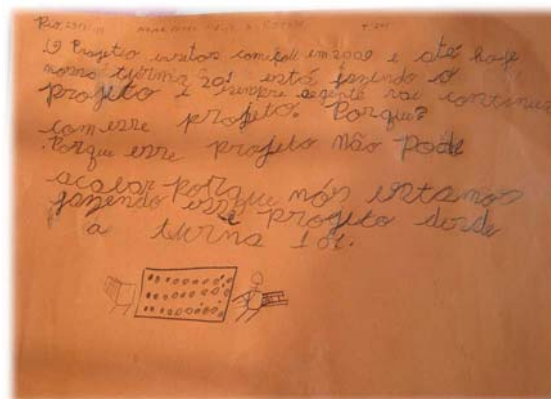 Rio,
O Projeto insetos começou em 2009 e até hoje
nossa turma 201 está fazendo o
projeto e sempre agente vai continua
com esse projeto. Porque?
.Porque esse projeto não pode
acabar porque nós estamos
fazendo esse projeto desde
a turma 101.